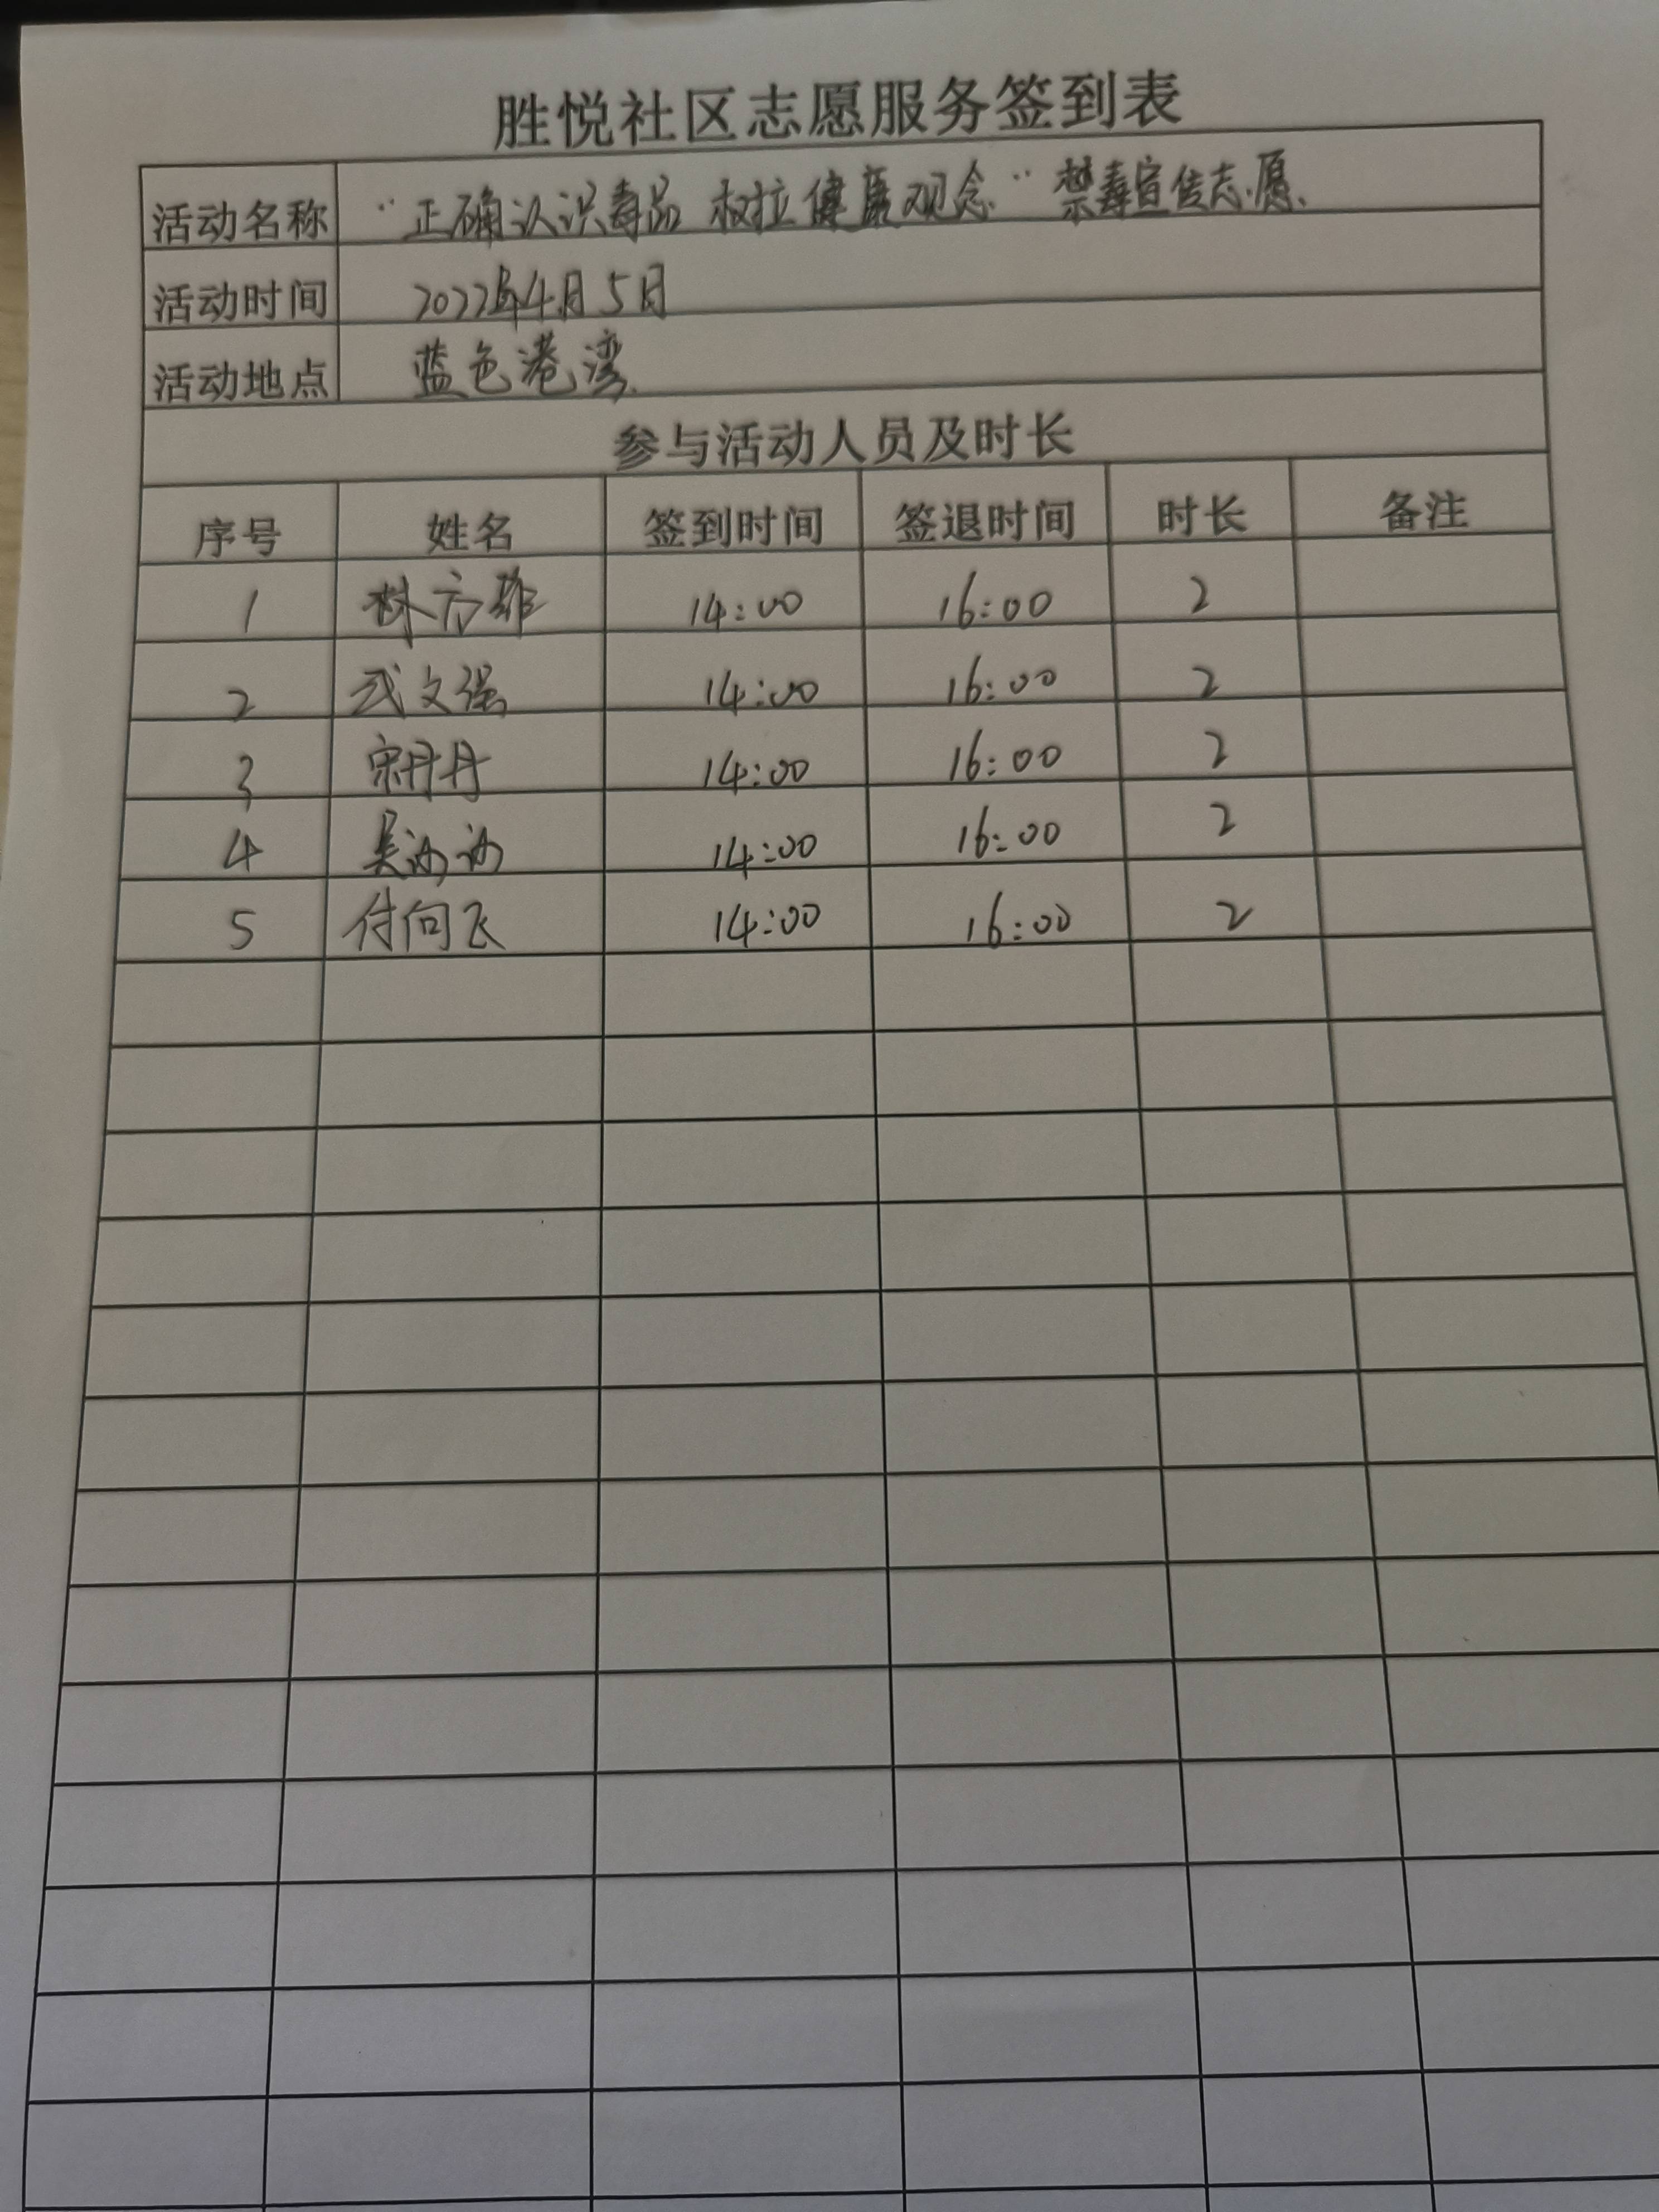 胜悦社区志愿服务签到表
活动名称 "正确认识毒品 树拉健康观念" 禁毒宣传志愿.
活动时间 2022年4月5日
活动地点 蓝色港湾.
参与活动人员及时长
序号 姓名 签到时间 签退时间 时长 备注
1 林方雄 14:00 16:00 2
2 武文强 14:00 16:00 2
3 宋丹丹 14:00 16:00 2
4 吴 14:00 16:00 2
5 付向飞 14:00 16:00 2